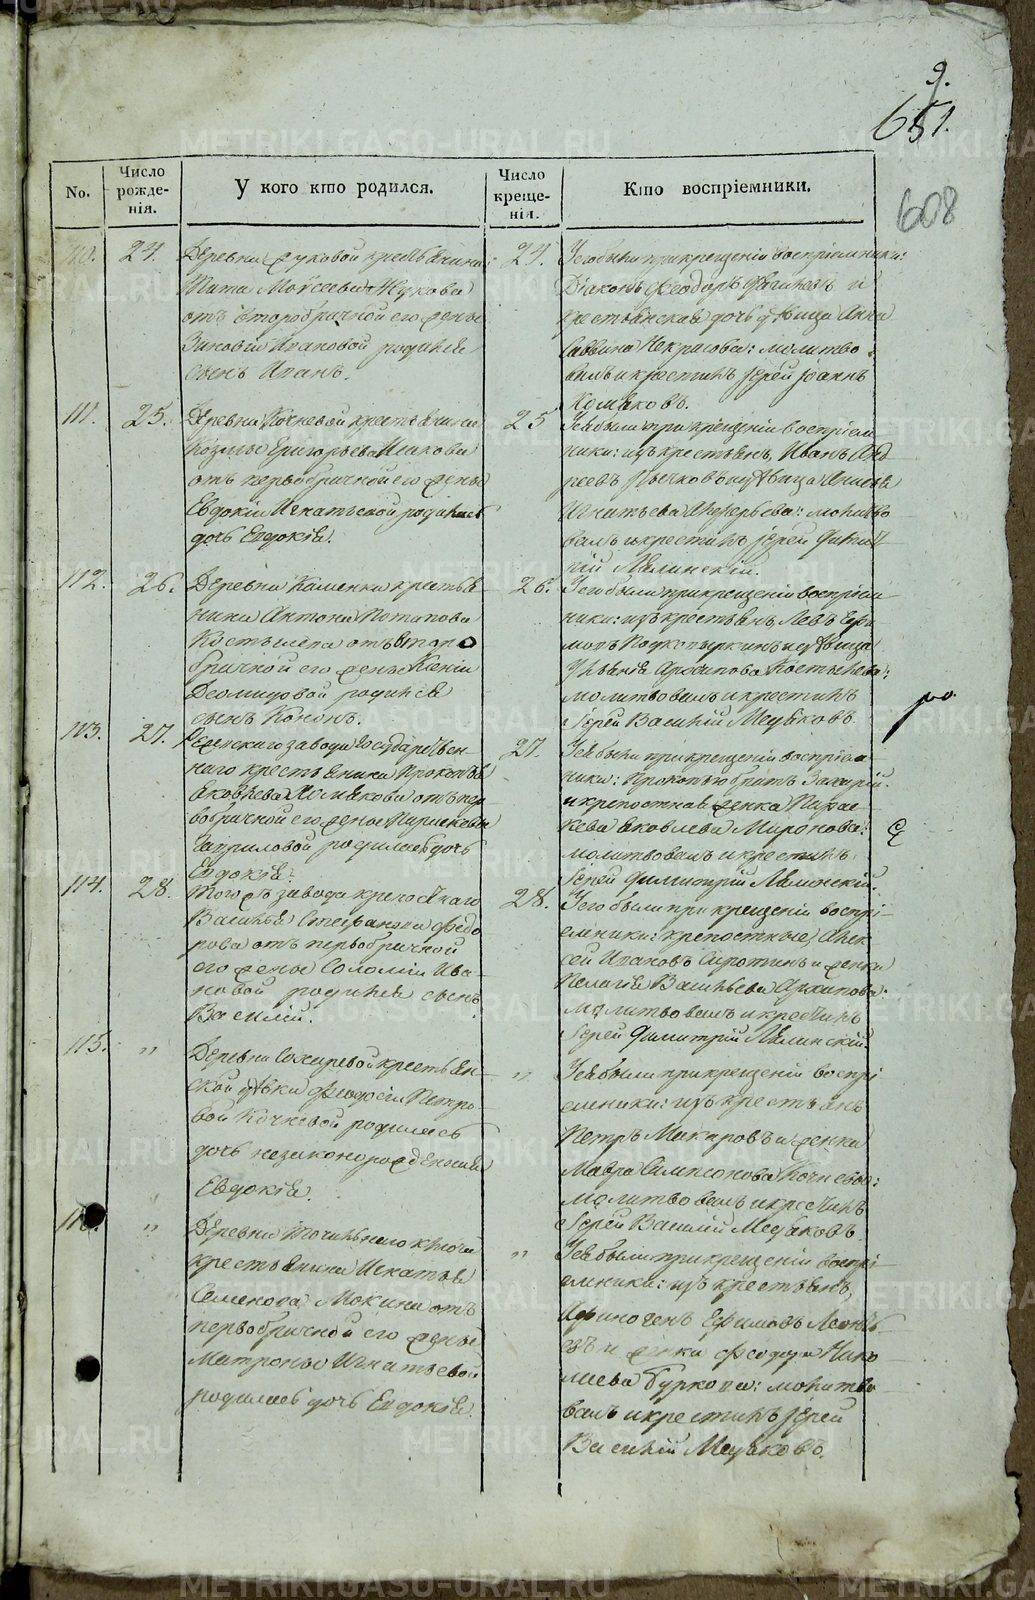 9.
651.
608
No.
Число рожде-нія.
У кого кто родился.
Число креще-нія.
Кто воспріемники.
110.
24.
Деревни крестьянина
Тита Моѵсеева Жукова
отъ второбрачной его жены
Зиновіи Ивановой родился
сынъ Иванъ.
24.
У его были при крещеніи воспріемники:
Діаконъ Феодоръ и
крестьянская дочь дѣвица Анна
Саввина Некрасова: молитво-
валъ и крестилъ Іерей Іоаннъ
Хомяковъ.
111.
25.
Деревни Кочневой крестьянина
Козмы Григорьева Исакова
отъ первобрачной его жены
Евдокіи Игнатьевой родилась
дочь Евдокія.
25
У ея были при крещеніи воспріем-
ники: изъ крестьянъ Иванъ Анд
реевъ и дѣвица
Игнатьева: молитво
валъ и крестилъ Іерей Димит
рій Лялинскій.
112.
26.
Деревни Каменки крестья
нина Антона Потапова
Костылева отъ второ
брачной его жены Ксеніи
Деомидовой родился
сынъ Кононъ.
26.
У его были при крещеніи воспріем
ники: изъ крестьянъ Левъ Ефи
мовъ и дѣвица
Ульянія Архипова Костылева:
молитвовалъ и крестилъ
Іерей Василій Медяковъ.
113.
27.
Режевскаго завода Государствен-
наго крестьянина Прокопья
Яковлева Хомякова отъ пер
вобрачной его жены Парасковьи
Гавриловой родилась дочь
Евдокія.
27.
У ея были при крещеніи воспріем
ники: Прокопью братъ Захарій
и крепостная женка Парас
кева Яковлева Миронова:
молитвовалъ и крестилъ
Іерей Димитрій Лялинскій.
114.
28.
Того жъ завода крепостнаго
Василья Стефанова Федо
рова отъ первобрачной
его жены Соломіи Ива
новой родился сынъ
Василій.
28.
У его были при крещеніи воспрі-
емники: крепостные, Алек
сей Ивановъ Сиротинъ и женка
Пелагія Васильева Архипова:
молитвовалъ и крестилъ
Іерей Димитрій Лялинскій
115.
"
Деревни Сохаревой крестьян-
ской дѣвки Феодосіи Петро-
вой Кочневой родилась
дочь незаконорожденная
Евдокія.
"
У ея были при крещеніи воспрі
емники: изъ крестьянъ
Петръ Макаровъ и женка
Мавра Самсонова Кочнева:
молитвовалъ и крестилъ
Іерей Василій Медяковъ.
116.
"
Деревни Точильнаго ключа
крестьянина Игнатья
Семенова Мокина отъ
первобрачной его жены
Матроны Игнатьевой
родилась дочь Евдокія.
"
У ея были при крещеніи воспрі
емники: изъ крестьянъ,
Афиногенъ Ефимовъ Леонть
евъ и женка Федора Нико
лаева Буркова: молитво
валъ и крестилъ Іерей
Василій Медяковъ.
METRIKI.GASO-URAL.RU